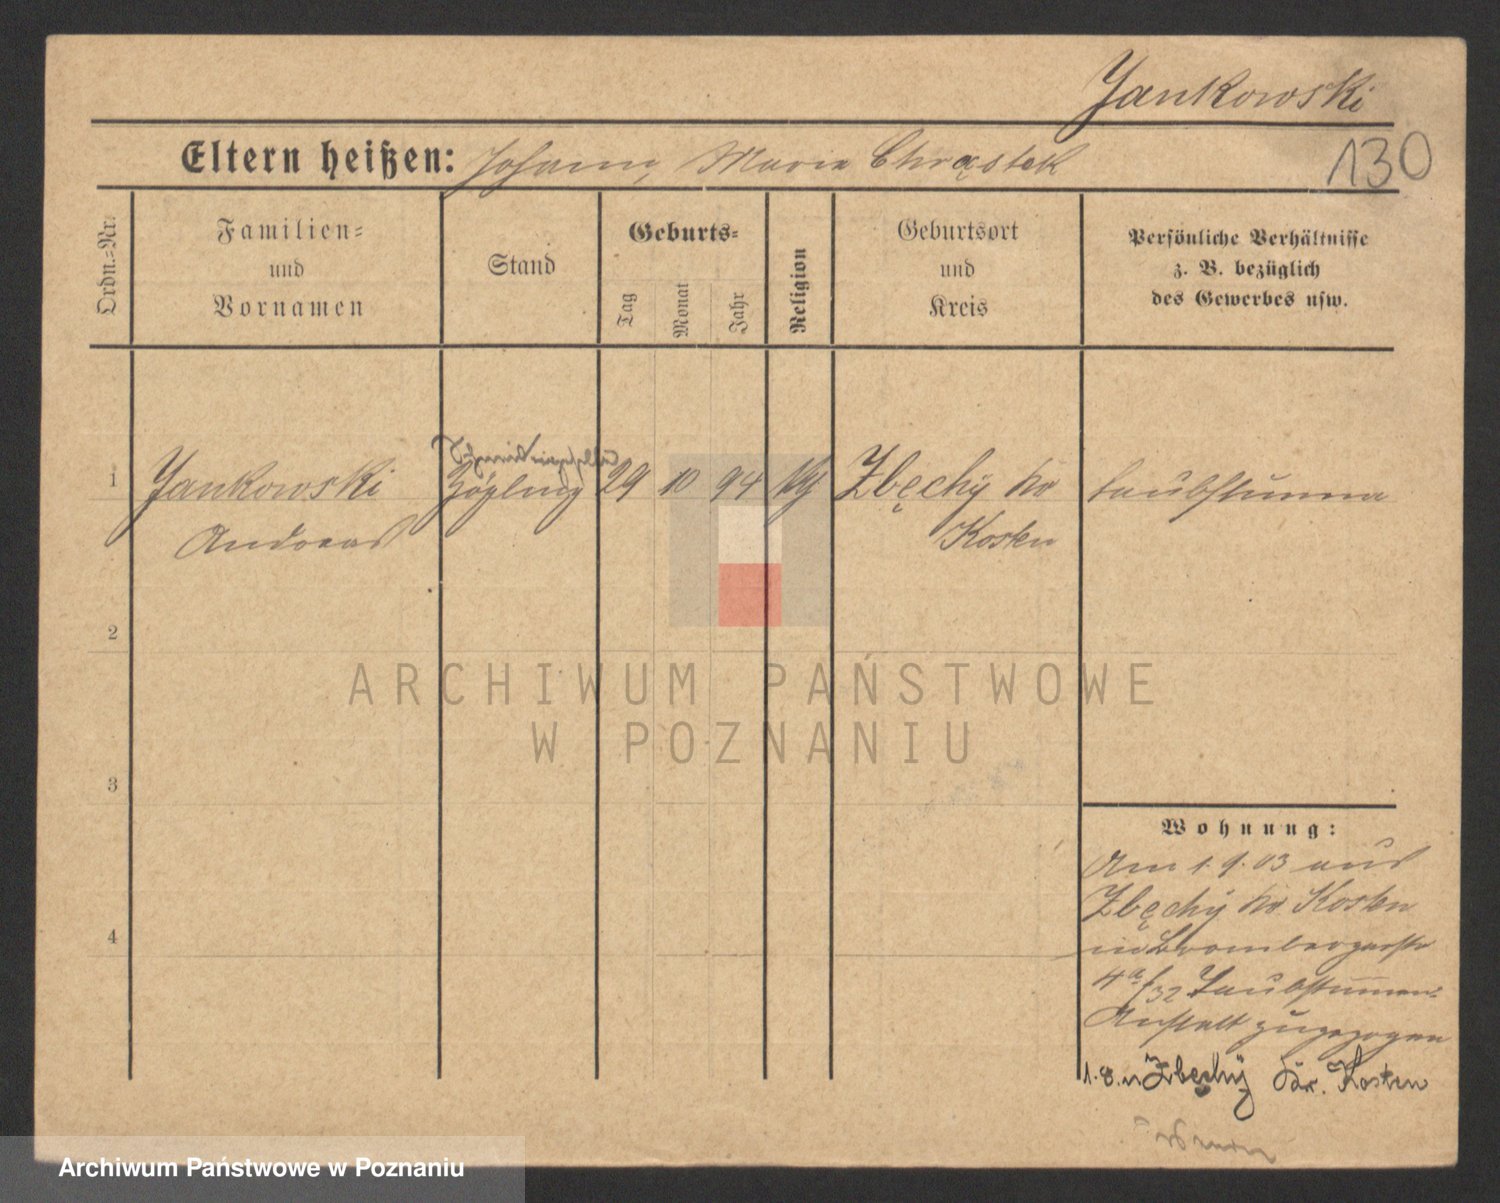 Jankowski
Eltern heißen: Johann, Marie Chrąstek
130
Ordn.-Nr.
Familien- und Vornamen
Stand
Geburts-
Tag
Monat
Jahr
Religion
Geburtsort und Kreis
Persönliche Verhältnisse z. B. bezüglich des Gewerbes usw.
1 Jankowski Zögling 29 10 94 Zbęchÿ Kr taubstumm
Andreas Kosten
2
ARCHIWUM PAŃSTWOWE
W POZNANIU
3
Wohnung:
Am 1. 9. 03 aus
Zbęchÿ Kr Kosten
in Brombergerstr
4a/32 Taubstummen-
Anstalt zugezogen
4
1. 8. n Zbęchÿ Kr. Kosten
Archiwum Państwowe w Poznaniu